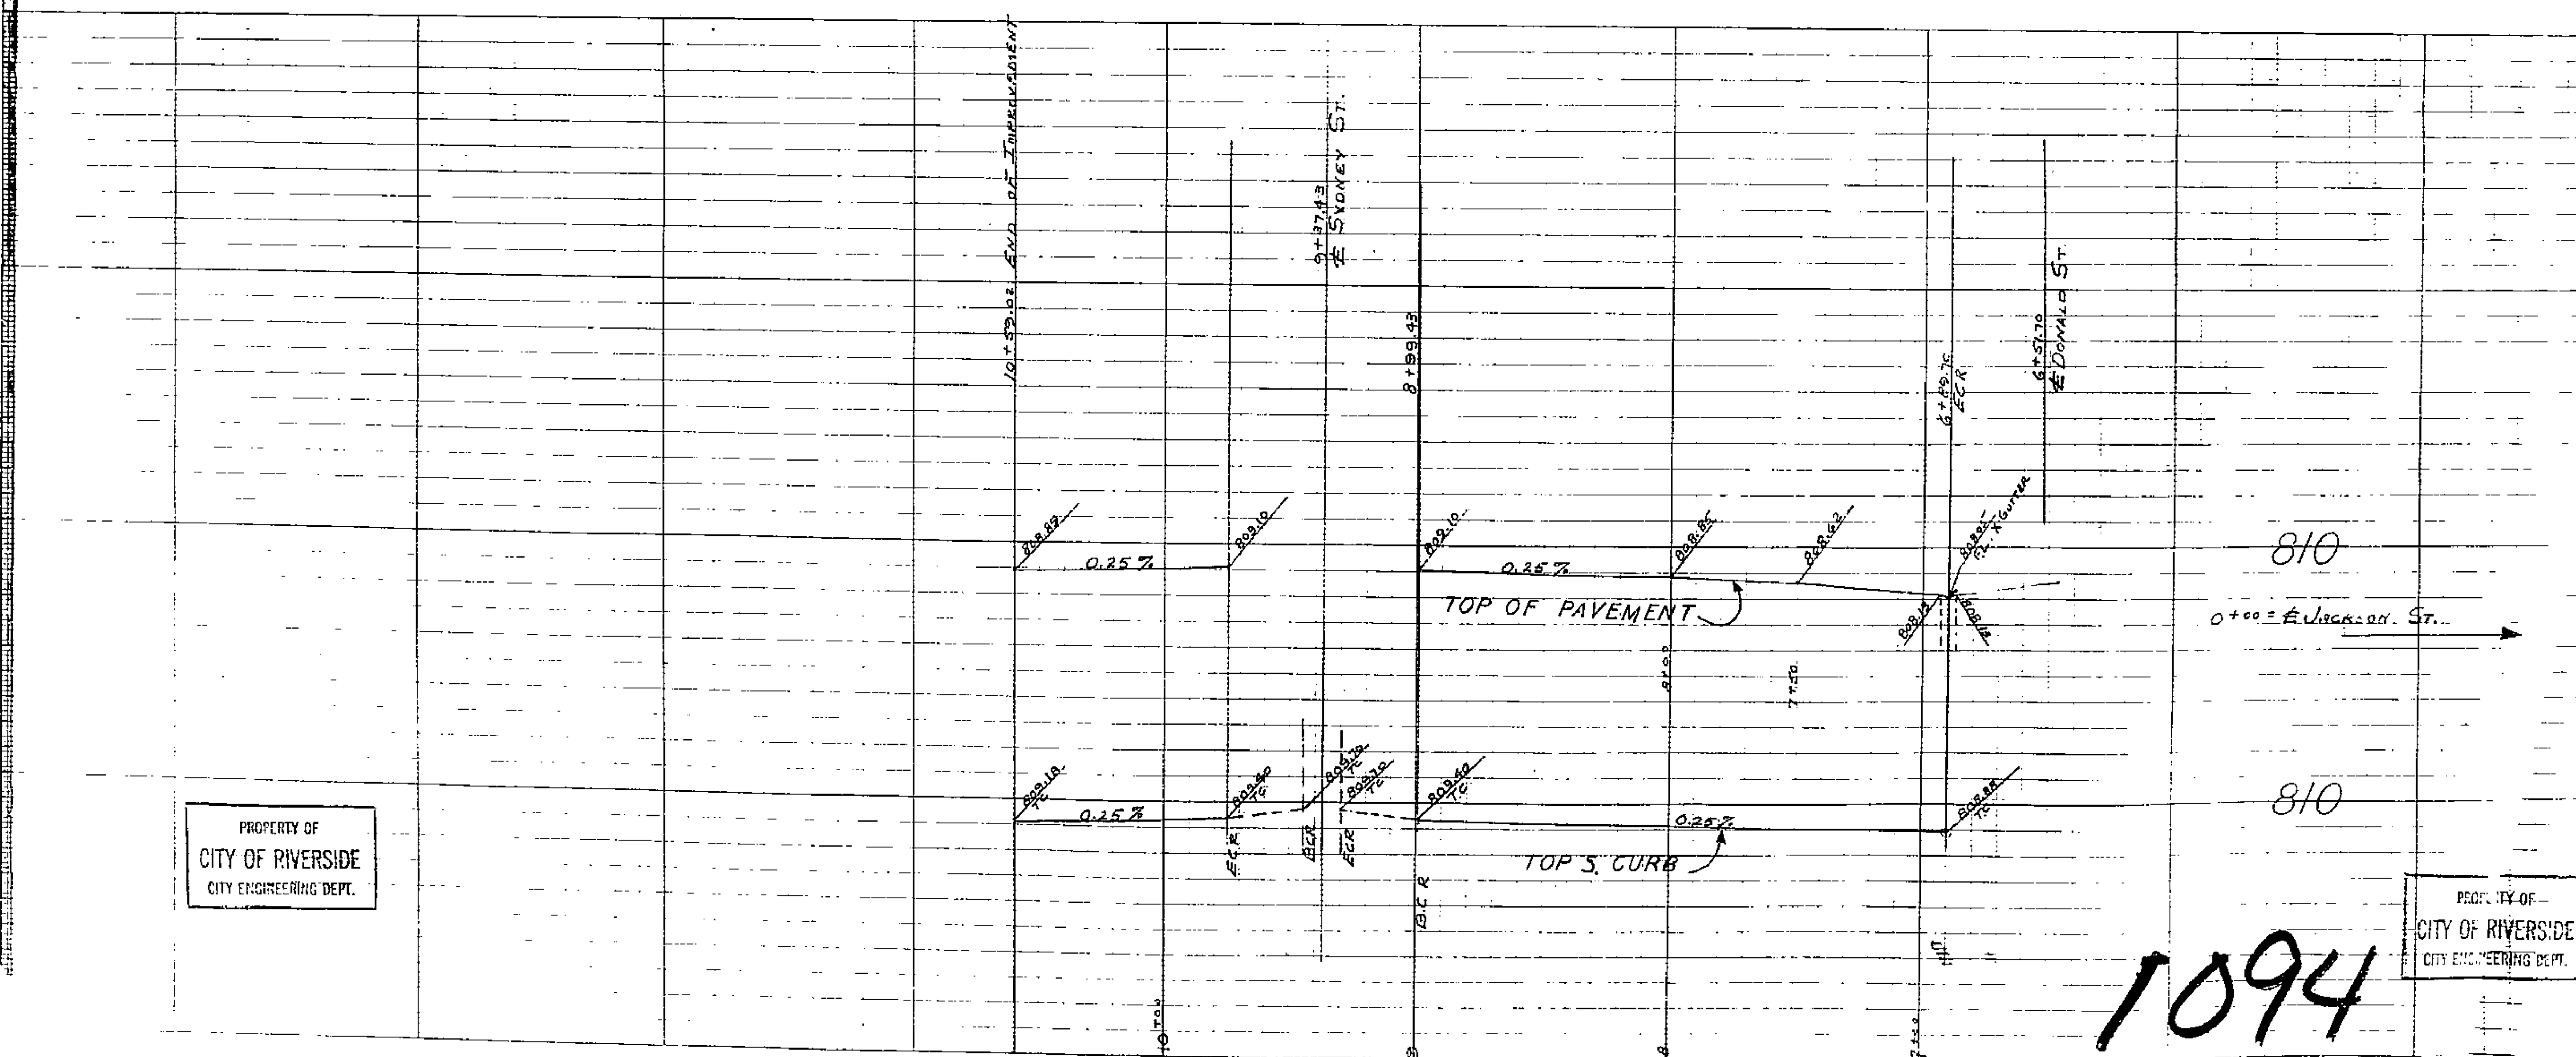 10+59.02 END OF IMPROVEMENT
9+37.43
℄ SYDNEY ST.
8+99.43
6+89.70
ECR
6+51.70
℄ DONALD ST.
808.89
0.25%
809.10
809.10
0.25%
808.85
808.62
808.05
F.L. X-GUTTER
TOP OF PAVEMENT
808.13
808.13
810
0+00 = ℄ JACKSON ST.
8+00
7+50
809.18
TC
0.25%
809.40
TC
809.70
TC
809.70
TC
809.40
TC
0.25%
808.88
TC
810
ECR
BCR
ECR
B.C.R
TOP S. CURB
PROPERTY OF
CITY OF RIVERSIDE
CITY ENGINEERING DEPT.
PROPERTY OF
CITY OF RIVERSIDE
CITY ENGINEERING DEPT.
10+00
9
8
7+00
1094